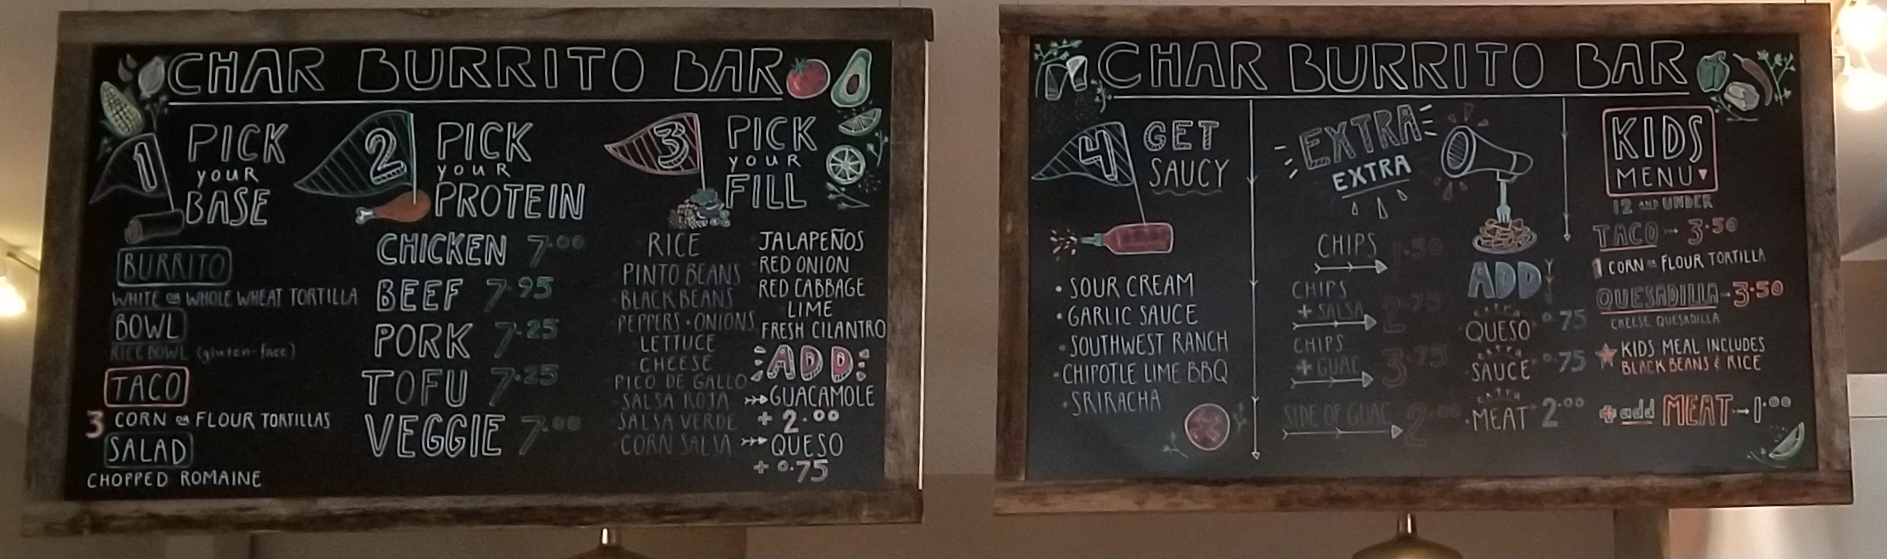 CHAR BURRITO BAR
1
PICK
YOUR
BASE
BURRITO
WHITE OR WHOLE WHEAT TORTILLA
BOWL
RICE BOWL (gluten-free)
TACO
3 CORN OR FLOUR TORTILLAS
SALAD
CHOPPED ROMAINE
2
PICK
YOUR
PROTEIN
CHICKEN 7.00
BEEF 7.95
PORK 7.25
TOFU 7.25
VEGGIE 7.00
3
PICK
YOUR
FILL
RICE
PINTO BEANS
BLACK BEANS
PEPPERS · ONIONS
LETTUCE
CHEESE
PICO DE GALLO
SALSA ROJA
SALSA VERDE
CORN SALSA
JALAPEÑOS
RED ONION
RED CABBAGE
LIME
FRESH CILANTRO
ADD
GUACAMOLE
+ 2.00
QUESO
+ 0.75
CHAR BURRITO BAR
4
GET
SAUCY
· SOUR CREAM
· GARLIC SAUCE
· SOUTHWEST RANCH
· CHIPOTLE LIME BBQ
· SRIRACHA
EXTRA
EXTRA
CHIPS 1.50
CHIPS
+ SALSA 2.75
CHIPS
+ GUAC 3.75
SIDE OF GUAC 2.00
ADD
EXTRA
QUESO 0.75
EXTRA
SAUCE 0.75
EXTRA
MEAT 2.00
KIDS
MENU
12 AND UNDER
TACO 3.50
1 CORN OR FLOUR TORTILLA
QUESADILLA 3.50
CHEESE QUESADILLA
KIDS MEAL INCLUDES
BLACK BEANS & RICE
+ add MEAT 1.00